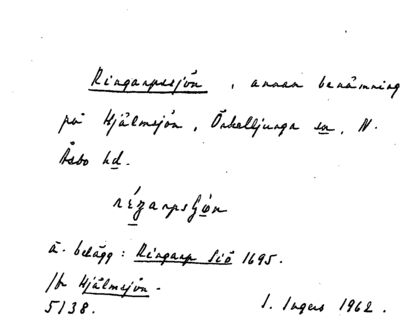 Ringarpssjön, annan benämning
på Hjälmsjön, Örkelljunga sn, N.
Åsbo hd.
ä. belägg: Ringarp Siö 1695.
/br Hjälmsjön.
5138. I. Ingers 1962.